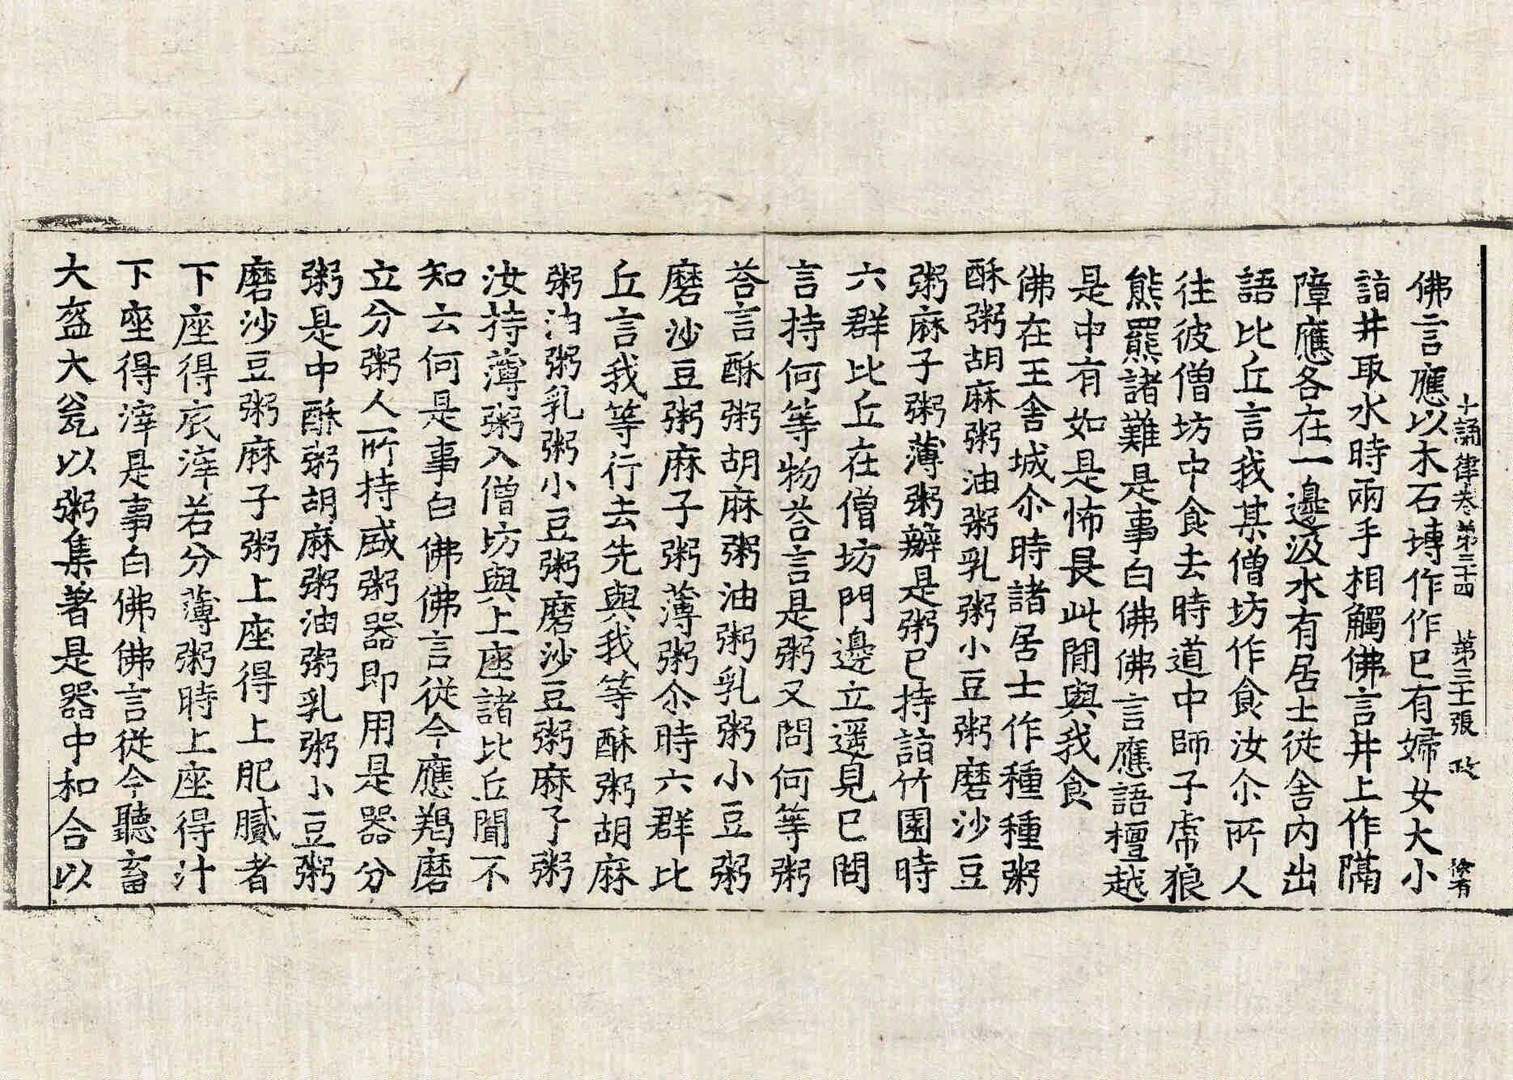 十誦律卷第三十四　第三十張　政
佛言應以木石塼作作已有婦女大小
詣井取水時兩手相觸佛言井上作隔
障應各在一邊汲水有居士從舍內出
語比丘言我某僧坊作食汝尒所人
往彼僧坊中食去時道中師子虎狼
熊羆諸難是事白佛佛言應語檀越
是中有如是怖畏此間與我食
佛在王舍城尒時諸居士作種種粥
酥粥胡麻粥油粥乳粥小豆粥磨沙豆
粥麻子粥薄粥辦是粥已持詣竹園時
六群比丘在僧坊門邊立遥見已問
言持何等物荅言是粥又問何等粥
荅言酥粥胡麻粥油粥乳粥小豆粥
磨沙豆粥麻子粥薄粥尒時六群比
丘言我等行去先與我等酥粥胡麻
粥油粥乳粥小豆粥磨沙豆粥麻子粥
汝持薄粥入僧坊與上座諸比丘聞不
知云何是事白佛佛言從今應羯磨
立分粥人所持盛粥器即用是器分
粥是中酥粥胡麻粥油粥乳粥小豆粥
磨沙豆粥麻子粥上座得上肥膩者
下座得底滓若分薄粥時上座得汁
下座得滓是事白佛佛言從今聽畜
大盔大瓫以粥集著是器中和合以